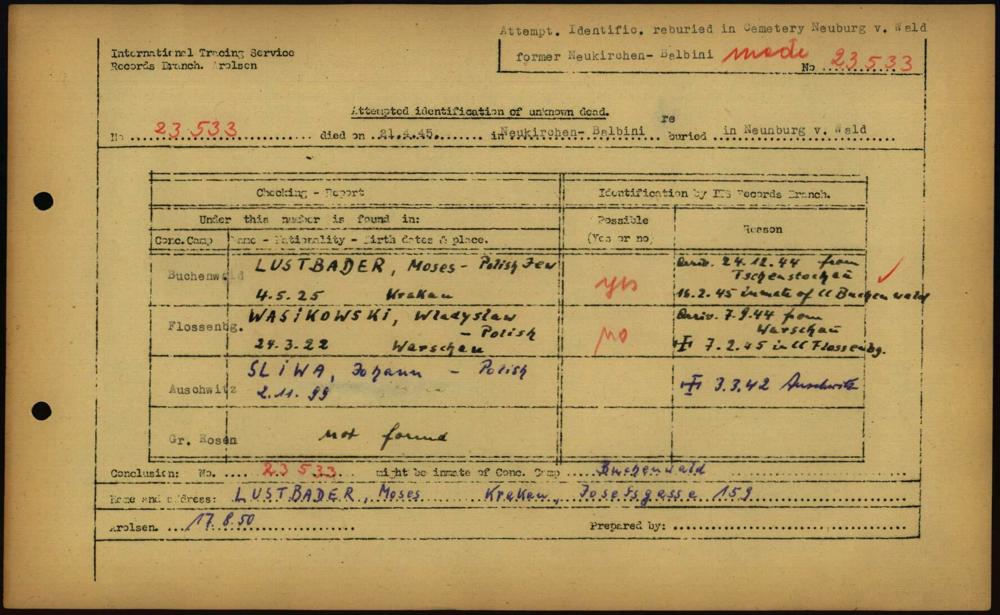 Attempt. Identific. reburied in Cemetery Neuburg v. Wald
former Neukirchen- Balbini made No 23533
International Tracing Service
Records Branch. Arolsen
Attempted identification of unknown dead.
No 23533 died on 21.4.45. in Neukirchen- Balbini re buried in Neunburg v. Wald
Checking - Report Identification by ITS Records Branch.
Under this number is found in: Possible (Yes or no) Reason
Conc. Camp Name - Nationality - Birth dates & place.
Buchenwald LUSTBADER, Moses - Polish Jew yes arriv. 24.12.44 from
Tschenstochau
4.5.25 Krakau 16.2.45 inmate of CC Buchenwald
Flossenbg. WASIKOWSKI, Wladyslaw no arriv. 7.9.44 from
- Polish Warschau
24.3.22 Warschau 7.2.45 in CC Flossenbg.
Auschwitz SLIWA, Johann - Polish 3.3.42 Auschwitz
2.11.99
Gr. Rosen not found
Conclusion: No. 23533 might be inmate of Conc. Camp Buchenwald
Name and address: LUSTBADER, Moses Krakau, Josefsgasse 159
Arolsen. 17.8.50 Prepared by: